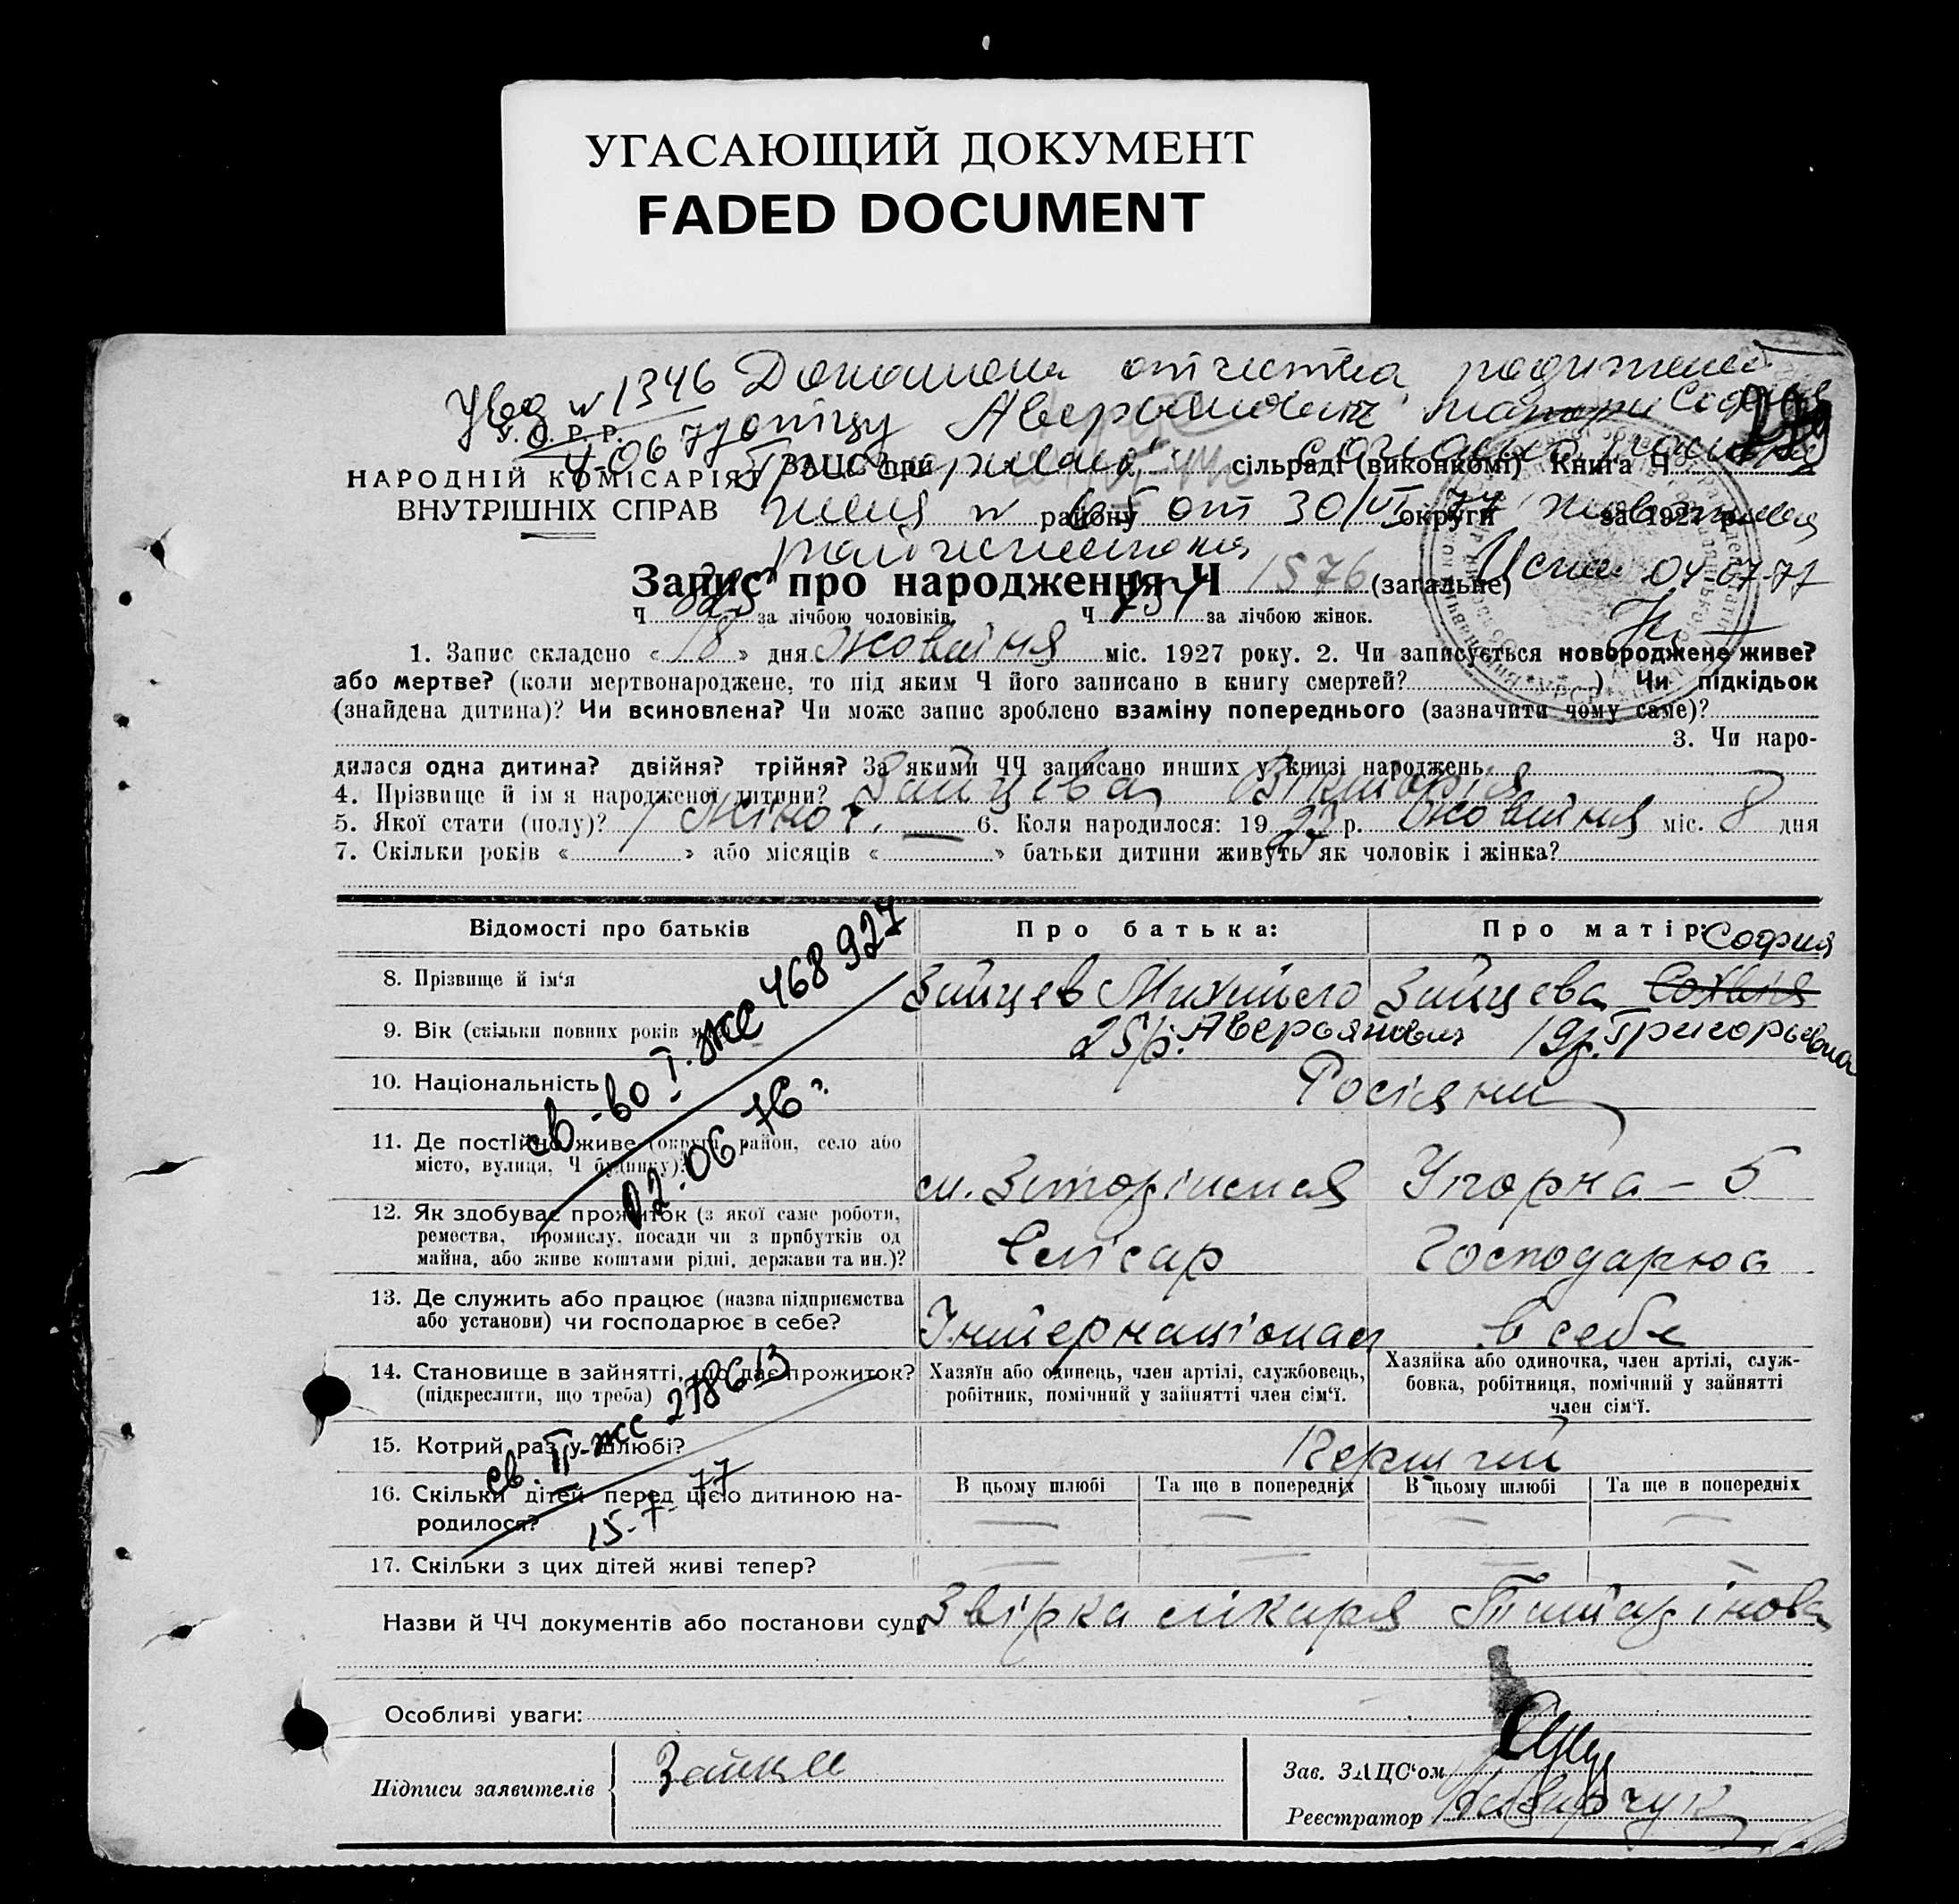 УГАСАЮЩИЙ ДОКУМЕНТ
FADED DOCUMENT
Увед № 1346 Дополнены отчества родителей
отцу Аверьянович матери София
У. С. Р. Р.
НАРОДНІЙ КОМІСАРІЯТ
ВНУТРІШНІХ СПРАВ
ЗАЦС при сільраді (виконкомі) Книга Ч
району округи за 1927 р.
от 30/VI 77
Запис про народження Ч 1576 (загальне) 04-07-77
Ч за лічбою чоловіків. Ч за лічбою жінок.
1. Запис складено « 18 » дня Жовтня міс. 1927 року. 2. Чи записується новороджене живе?
або мертве? (коли мертвонароджене, то під яким Ч його записано в книгу смертей? ) Чи підкідьок
(знайдена дитина)? Чи всиновлена? Чи може запис зроблено взаміну попереднього (зазначити чому саме)?
3. Чи наро-
дилася одна дитина? двійня? трійня? За якими ЧЧ записано инших у книзі народжень
4. Прізвище й ім я народженої дитини? Зайцева Вікторія
5. Якої стати (полу)? жіноч. 6. Коли народилося: 1927 р. Жовтня міс. 8 дня
7. Скільки років « » або місяців « » батьки дитини живуть як чоловік і жінка?
Відомості про батьків Про батька: Про матір: София
8. Прізвище й ім'я Зайцев Михайло Зайцева
9. Вік (скільки повних років 25 р. Аверьянович 19 р. Григорьевна
10. Національність Росіяни
св-во I-жс 468927
02.06.76 г.
11. Де постійно живе (округа, район, село або
місто, вулиця, Ч будинку)? м. Запоріжжя Упорна - 5
12. Як здобуває прожиток (з якої саме роботи,
ремества, промислу, посади чи з прибутків од
майна, або живе коштами рідні, держави та ин.)? Слісар Господарює
13. Де служить або працює (назва підприємства
або установи) чи господарює в себе? Інтернаціонал в себе
14. Становище в зайнятті, що дає прожиток?
(підкреслити, що треба)
Хазяїн або одинець, член артілі, службовець,
робітник, помічний у зайнятті член сім'ї.
Хазяйка або одиночка, член артілі, служ-
бовка, робітниця, помічний у зайнятті
член сім'ї.
15. Котрий раз у шлюбі? Перший
св. II-жс 278613
15-7-77
16. Скільки дітей перед цією дитиною на-
родилося?
В цьому шлюбі Та ще в попередніх В цьому шлюбі Та ще в попередніх
17. Скільки з цих дітей живі тепер?
Назви й ЧЧ документів або постанови суду Звірка лікаря
Особливі уваги:
Підписи заявителів
Зав. ЗАЦС'ом
Реєстратор